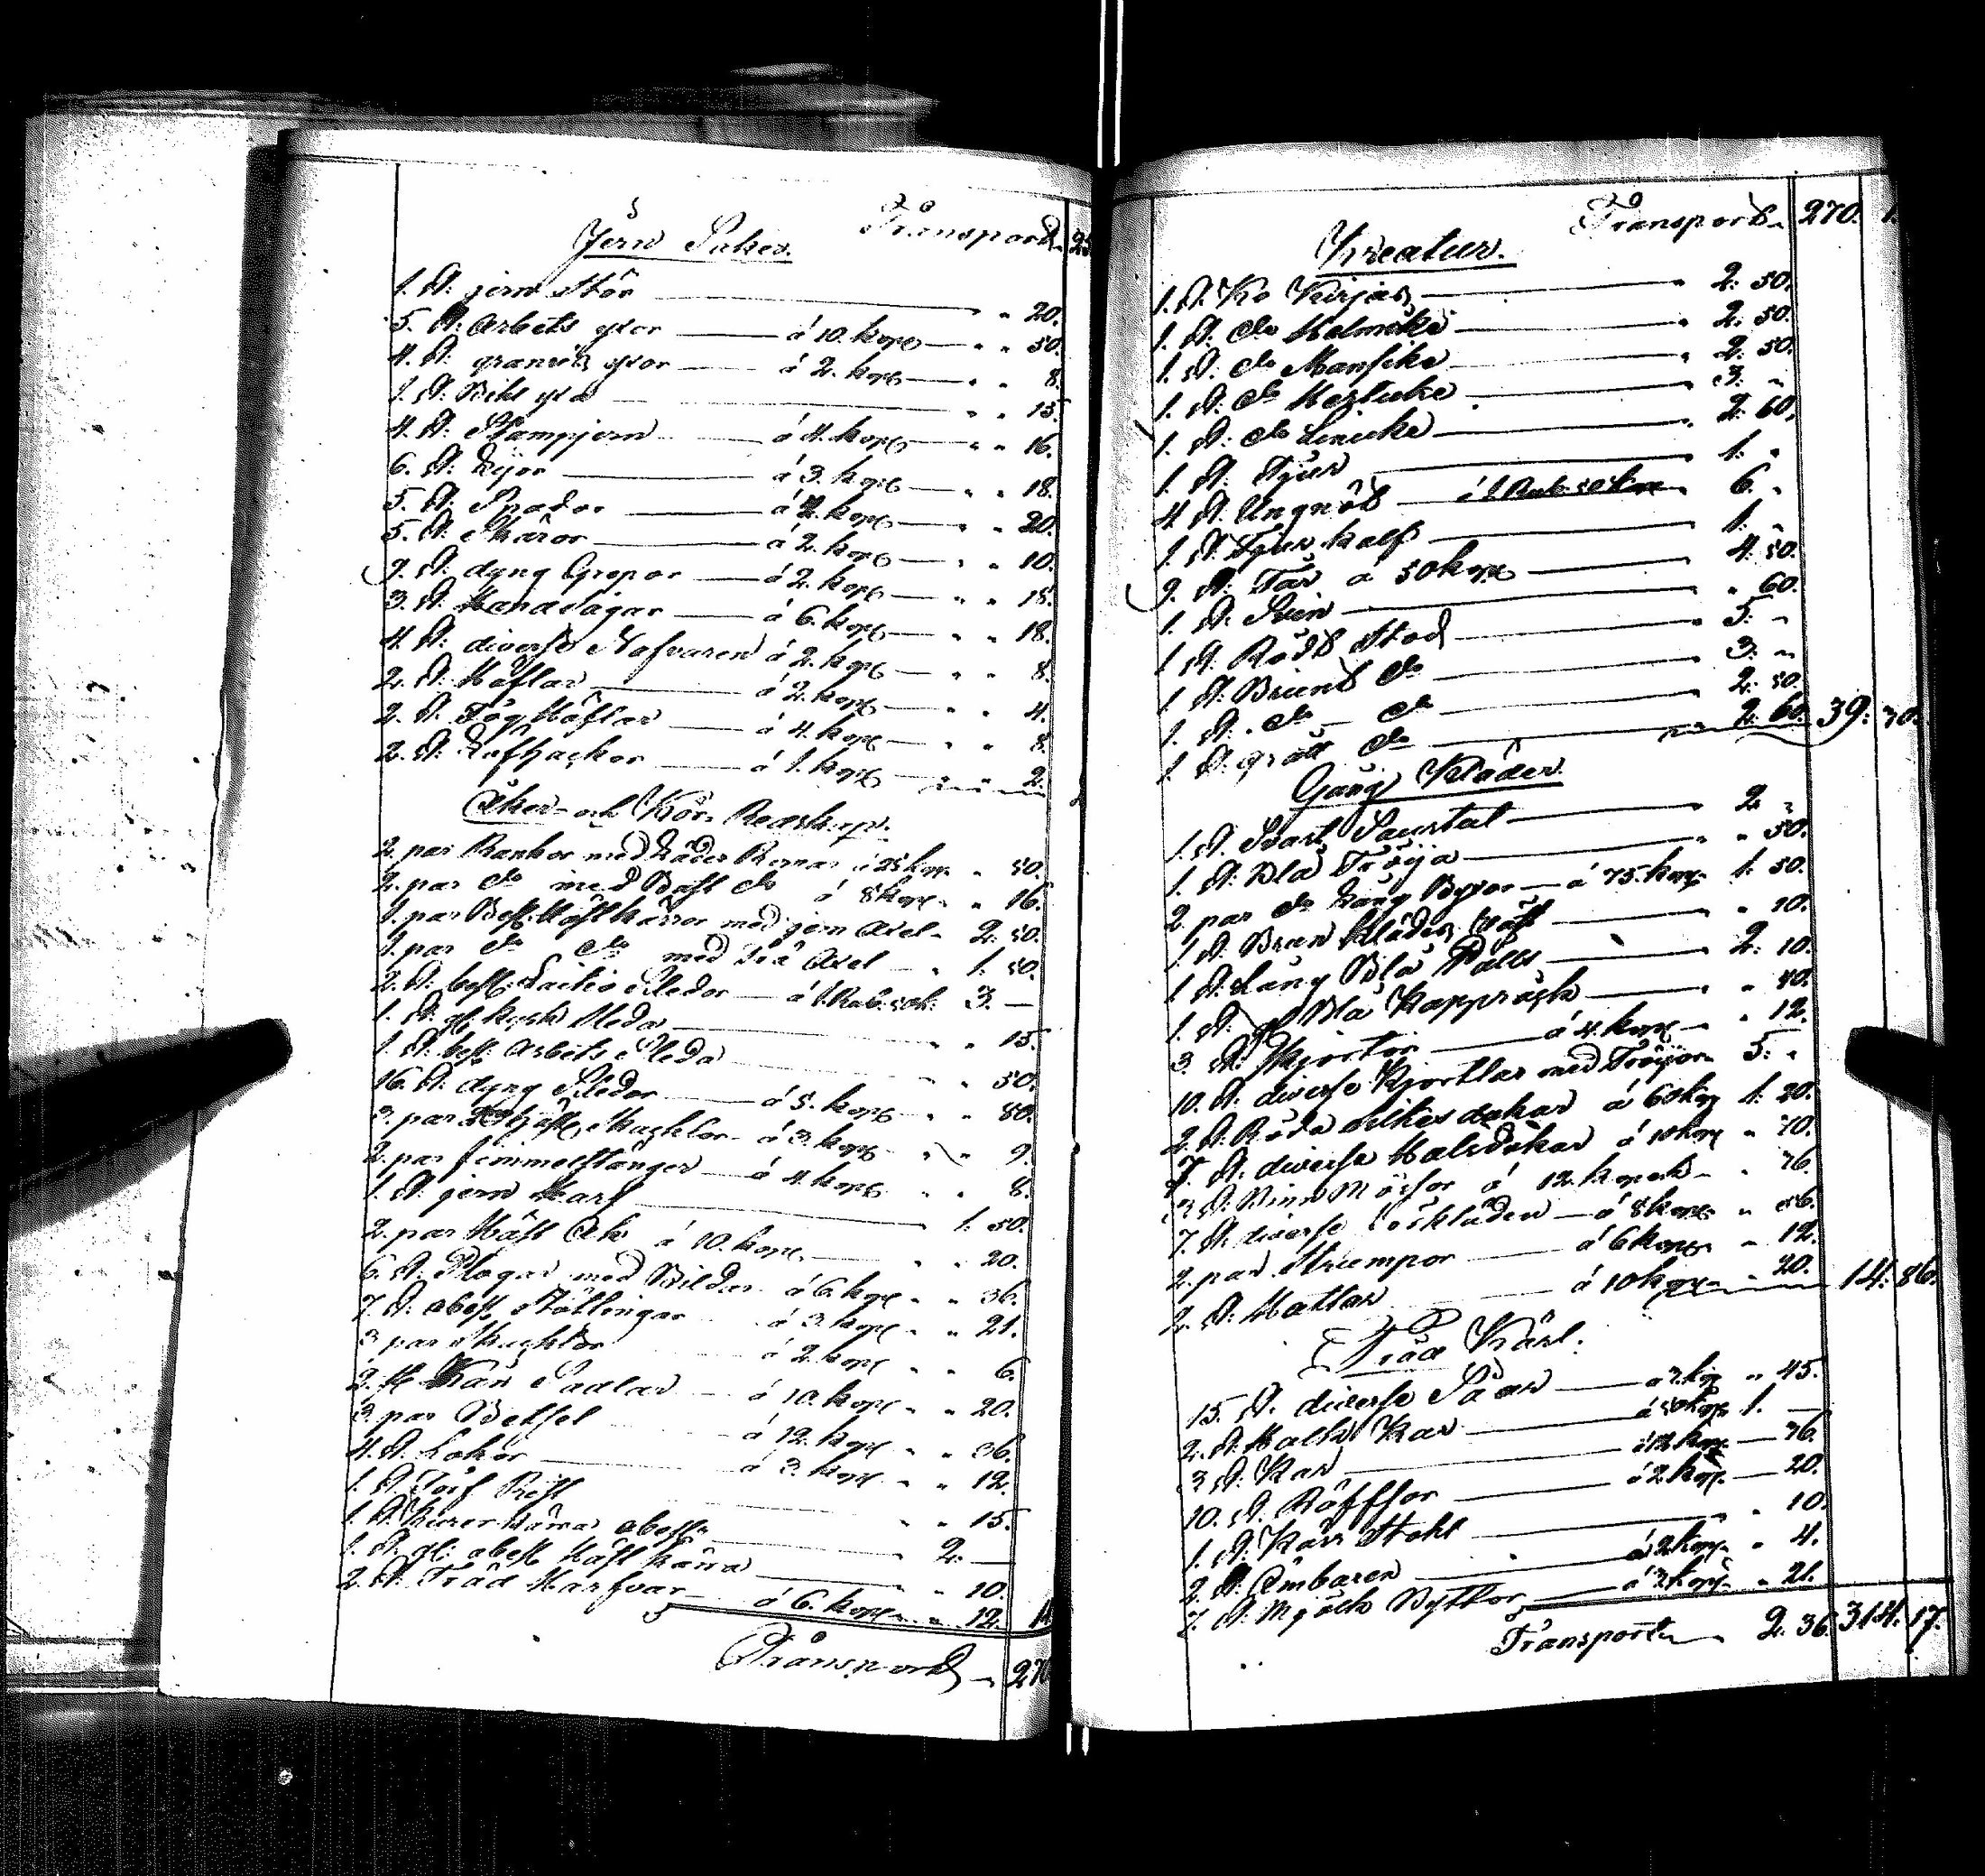 Transport 25
Jern Saker.
1. St: jern Stör " 20.
5. St: Arbets yxor á 10. kop " " 50.
4. St: yxor á 2. kop " " 8.
1. St: Bihl yxa " " 15.
4. St: Stampjern á 4. kop " " 16.
6. St: Lijor á 3. kop " " 18.
5. St: Spador á 4. kop " " 20.
5. St: Skäror á 2. kop " " 10.
9. St: dyng Grepar á 2. kop " " 18.
3. St: Handsågar á 6. kop " " 18.
4. St: diverse Nafvaren á 2. kop " " 8.
2. St: Höflar á 2. kop " " 4.
2. St: Fög Höflar á 4. kop " " 8.
2. St: Löfhackor á 1. kop " " 2.
Åker- och Kör- Redskap.
2. par Rankor med Läder Remar á 25 kop " 50.
2. par do med Bast do á 8 kop " " 16.
1. par Besl: Häst Kärror med jern Axel 2. 50.
1. par do do med Trä Axel " 1. 50.
2. St: besl: Slädor á 1 Rub: 50 k: 3. —
1. St: gl: Släda " " 15.
1. St: besl: Arbets Släda " " 50.
16. St: dyng Slädor á 5. kop " " 80.
3. par Skacklor á 3. kop " " 9.
2. par femmerstänger á 4. kop " " 8.
1. St: jern Harf 1. 50.
2. par Häst Ok á 10. kop " " 20.
6. St: Plogar med Bildar á 6. kop " " 36.
7. St: obesl: Stöttingar á 3. kop " " 21.
3. par Skacklor á 2. kop " " 6.
2. St: Kär Sadlar á 10. kop " " 20.
3. par Betsel á 12. kop " " 36.
4. St: Lokor á 3. kop " " 12.
1. St: Torf Rist " " 15.
1. St: kärra obesl: " 2. —
1. St: gl: obesl: Häst kärra " " 10.
2. St: Träd Harfvar á 6. kop " " 12. 1
Transport 270
Transport 270. 1.
Kreatur.
1. St: Ko Kirjas " 2. 50.
1. St: do Helmike " 2. 50.
1. St: do Mansike " 2. 50.
1. St: do Hertuke " 3. "
1. St: do Linicke " 2. 60.
1. St: Tjur " 1. "
4. St: Ungnöt á 1 Rub: 50 kop " 6. "
1. St: Tjur kalf " 1. "
9. St: Får á 50 kop 4. 50.
1. St: Svin " 60.
1. St: Rödt Stod 5. "
1. St: Brunt do 3. "
1. St: do — do 2. 50.
1. St: grått do 2. 60. 39. 30.
Gång Kläder.
1. St: Svart Saurtut 2. "
1. St: Blå Tröja " " 50.
2 par do Lång Byxor á 75. kop 1. 50.
1. St: Brun Klädes Väst " 10.
1. St: Lång Blå Palt 2. 10.
1. St: gl Blå Kappråck " " 40.
3. St: Skjortor á 4. kop " 12.
10. St: diverse Kjortlar med Tröijor 5. "
2. St: Röda silkes dukar á 60 kop 1. 20.
7. St: diverse Halsdukar á 10 kop " 70.
3. St: Binn Mössor á 12. kopek " 36.
7. St: diverse á 8 kop " 56.
2. par Strumpor á 6 kop " 12.
2. St: Hattar á 10 kop " 20. 14. 86.
Träd Kärl.
15. St: diverse Såar á 3 kop " 45.
2. St: Kar á 50 kop 1. —
3. St: Kar á 12 kop — 36.
10. St: á 2 kop — 20.
1. St: Kärr Stohl " 10.
2. St: Ämbaren á 2 kop " 4.
7. St: Mjölk Byttor á 3 kop " 21.
Transport " 2. 36. 314. 17.